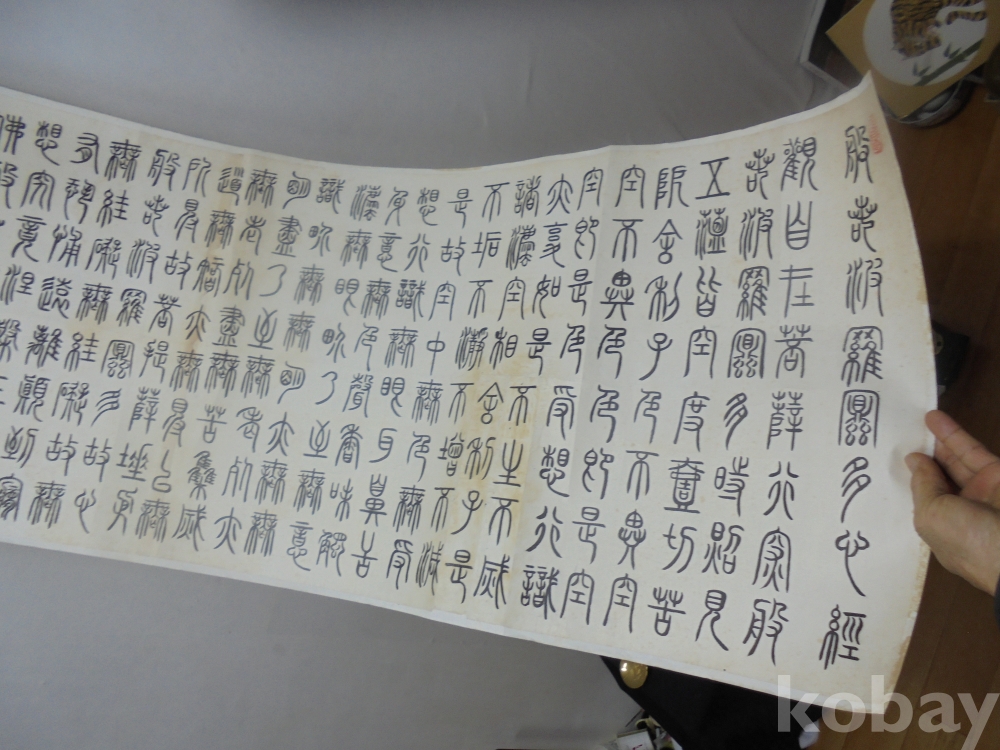 般若波羅蜜多心經
觀自在菩薩行深般
若波羅蜜多時照見
五蘊皆空度壹切苦
厄舍利子色不異空
空不異色色即是空
空即是色受想行識
亦復如是舍利子是
諸灋空相不生不滅
不垢不瀞不增不減
是故空中無色無受
想行識無眼耳鼻舌
身意無色聲香味觸
灋無眼界乃至無意
識界乃無無明亦無
明盡乃至無老死亦
無老死盡無苦集滅
道無智亦無得以無
所得故菩提薩埵
般若波羅蜜多故心
無罣礙無罣礙故無
有恐怖遠離顛倒夢
想究竟涅槃三
佛般
kobay